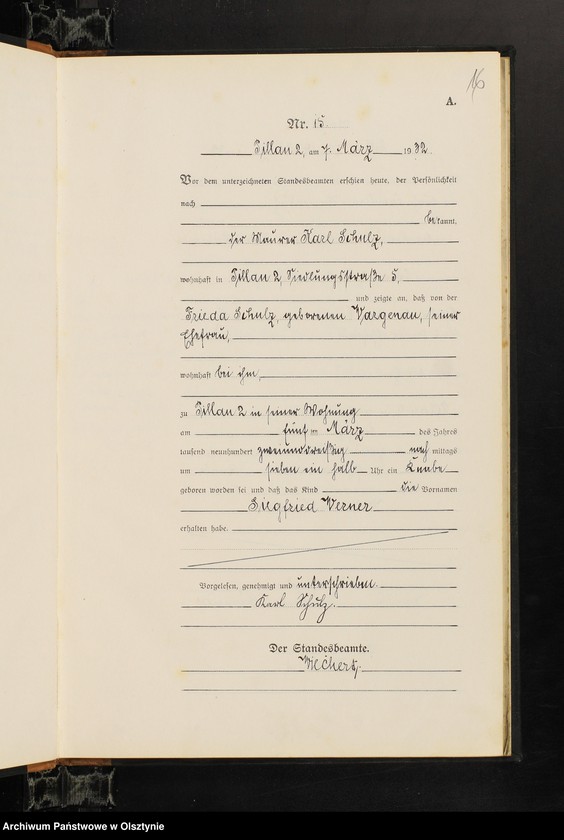 16
A.
Nr. 15.
Pillau 2, am 7. März 1932
Vor dem unterzeichneten Standesbeamten erschien heute, der Persönlichkeit
nach
bekannt.
der Maurer Karl Schulz,
wohnhaft in Pillau 2, Siedlungsstraße 5,
und zeigte an, daß von der
Frieda Schulz, geborenen Vargenau, seiner
Ehefrau,
wohnhaft bei ihm,
zu Pillau 2 in seiner Wohnung
am fünf ten März des Jahres
tausend neunhundert zweiunddreißig nach mittags
um sieben ein halb Uhr ein Knabe
geboren worden sei und daß das Kind die Vornamen
Siegfried Werner
erhalten habe.
Vorgelesen, genehmigt und unterschrieben.
Karl Schulz.
Der Standesbeamte.
Archiwum Państwowe w Olsztynie